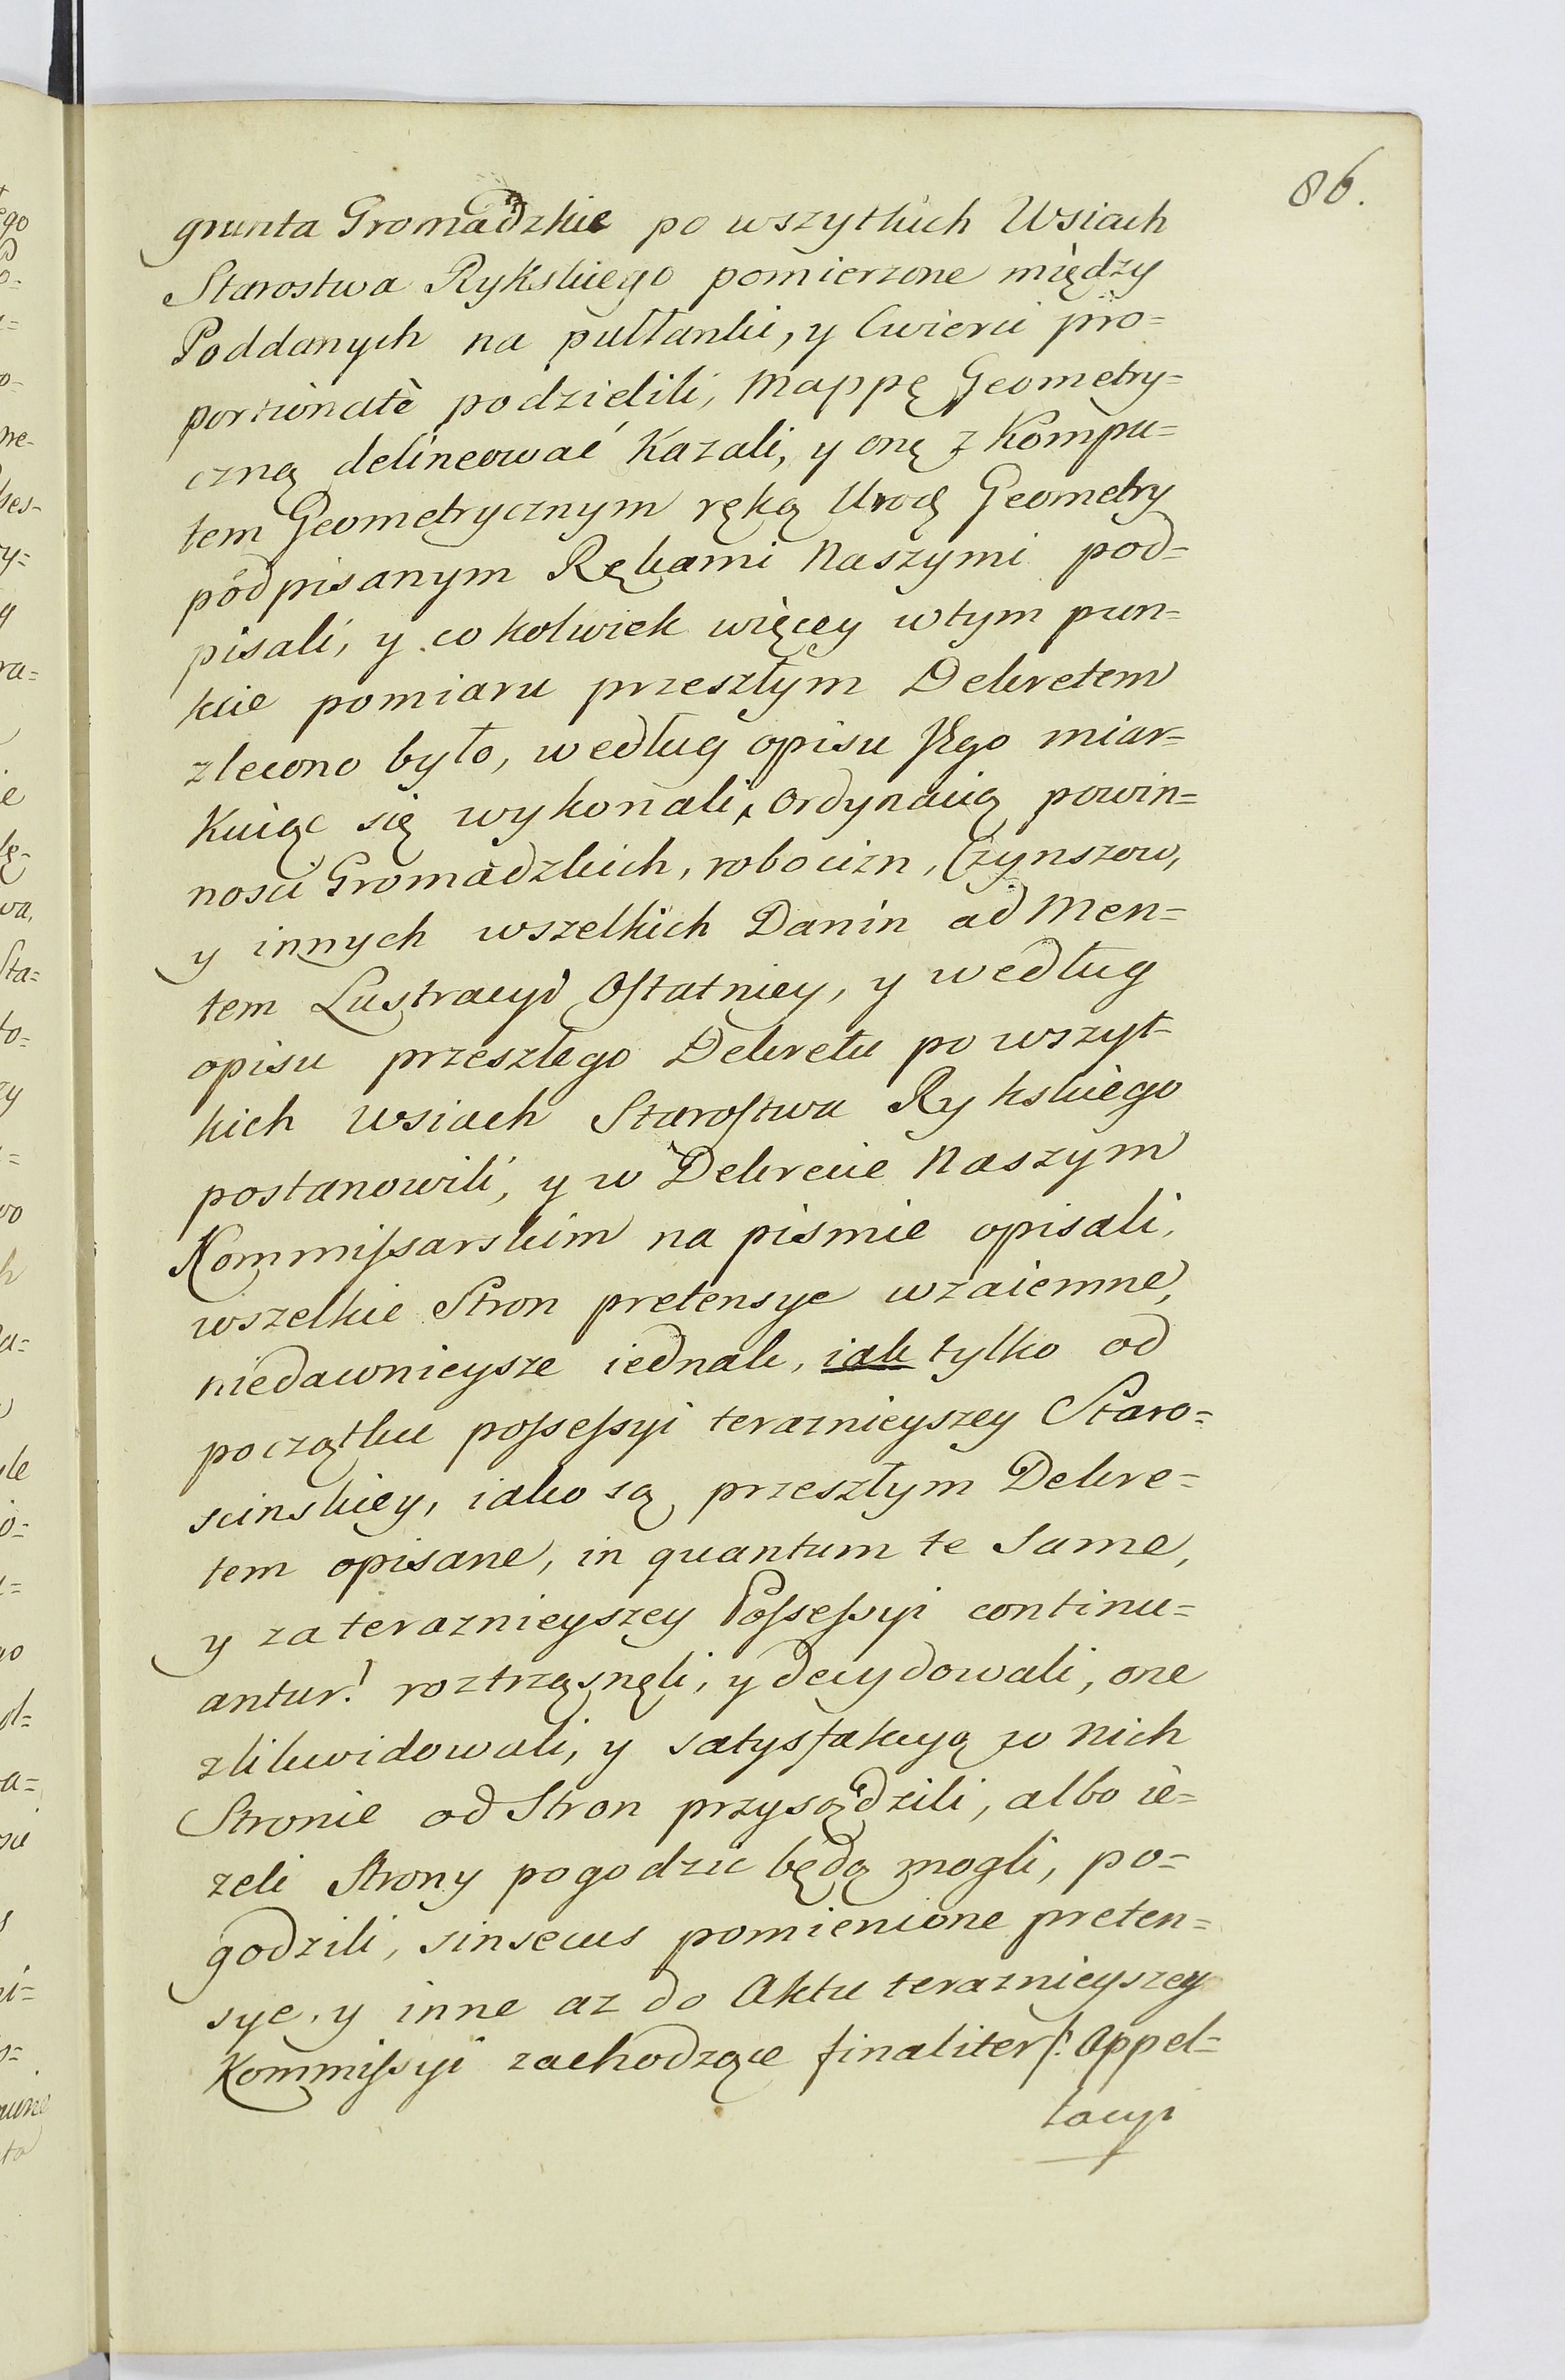 86.
grunta Gromadzkie po wszytkich Wsiach
Starostwa Rykskiego pomierzone między
Poddanych na pułłanki, y Cwierci pro=
portionatè podzielili, Mappę Geometry=
czną delineować Kazali, y onę z Kompu=
tem Geometrycznym ręką Urodę Geometry
podpisanym Rękami Naszymi pod=
pisali, y co kolwiek więcey w tym pun=
kcie pomiaru przeszłym Dekretem
zlecono było, według opisu Jego miar=
Kuiąc się wykonali, Ordynacią powin=
nosci Gromadzkich, robocizn, Czynszow,
y innych wszelkich Danin ad Men=
tem Lustracyi Ostatniey, y według
opisu przeszłego Dekretu po wszyt=
kich Wsiach Starostwa Rykskiego
postanowili, y w Dekrecie Naszym
Kommissarskim na pismie opisali,
wszelkie Stron pretensye wzaiemne,
niedawnieysze iednak, iak tylko od
początku possessyi teraznieyszey Staro=
scinskiey, iako są przeszłym Dekre=
tem opisane, in quantum te same,
y za teraznieyszey Possessyi continu=
antur! roztrząsnęli, y decydowali, one
zlikwidowali, y satysfakcyą w nich
Stronie od Stron przysądzili, albo ie=
zeli Strony pogodzic będą mogli, po=
godzili, sinsecus pomienione preten=
sye, y inne az do Aktu teraznieyszey
Kommissyi zachodzące finaliter /: Appel=
lacyi